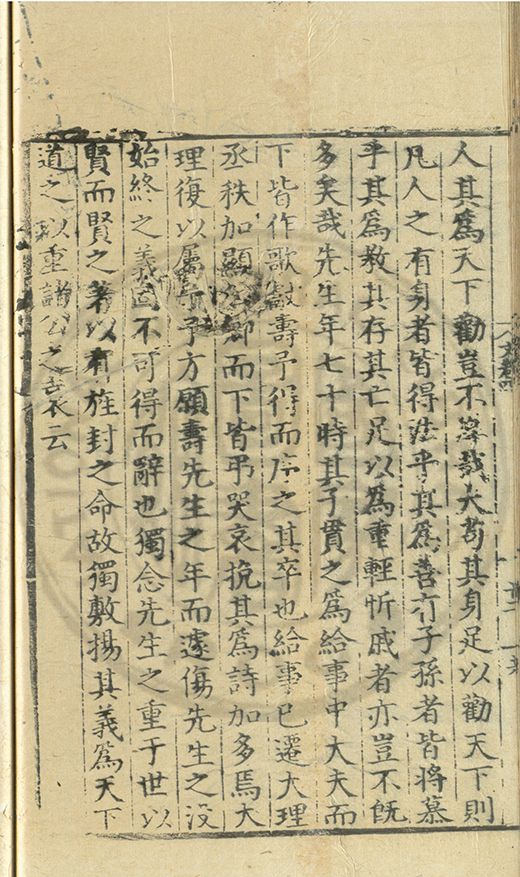 人其爲天下勸豈不難哉夫苟其身足以勸天下則
凡人之有身者皆得法乎其爲善有子孫者皆將慕
乎其爲教其存其亡足以爲重輕忻戚者亦豈不旣
多矣哉先生年七十時其子貫之爲給事中大夫而
下皆作歌敍壽予得而序之其卒也給事已遷大理
丞秩加顯公卿而下皆弔哭哀挽其爲詩加多焉大
理復以屬予予方願壽先生之年而遽傷先生之没
始終之義固不可得而辭也獨念先生之重于世以
賢而賢之著以有旌封之命故獨敷揚其義爲天下
道之以重諸公之哀云